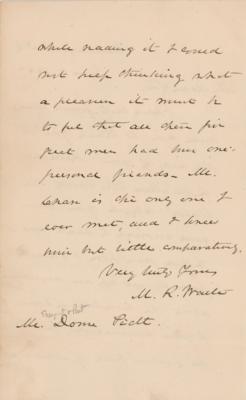 while reading it I could
not keep thinking what
a pleasure it must be
to feel that all these five
great men had been one's
personal friends — Mr.
is the only one I
ever met, and I knew
him but little comparatively.
Very truly Yours
M. R. Waite
Mr.